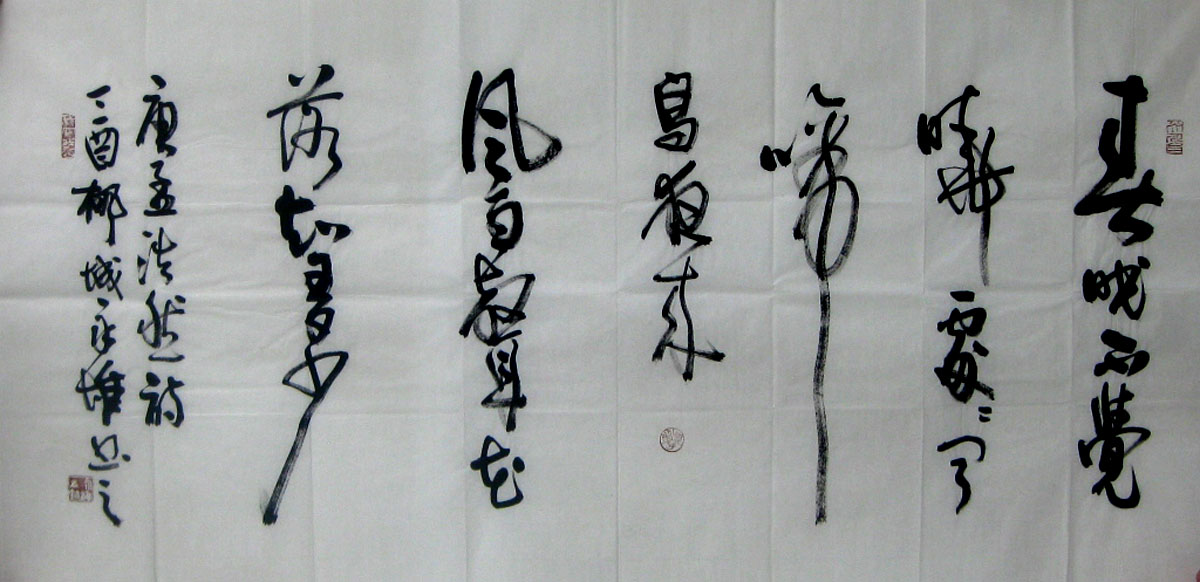 春眠不覺
曉處〻聞
啼
鳥夜來
風雨聲花
落知多少
唐孟浩然詩
酉柳城书之